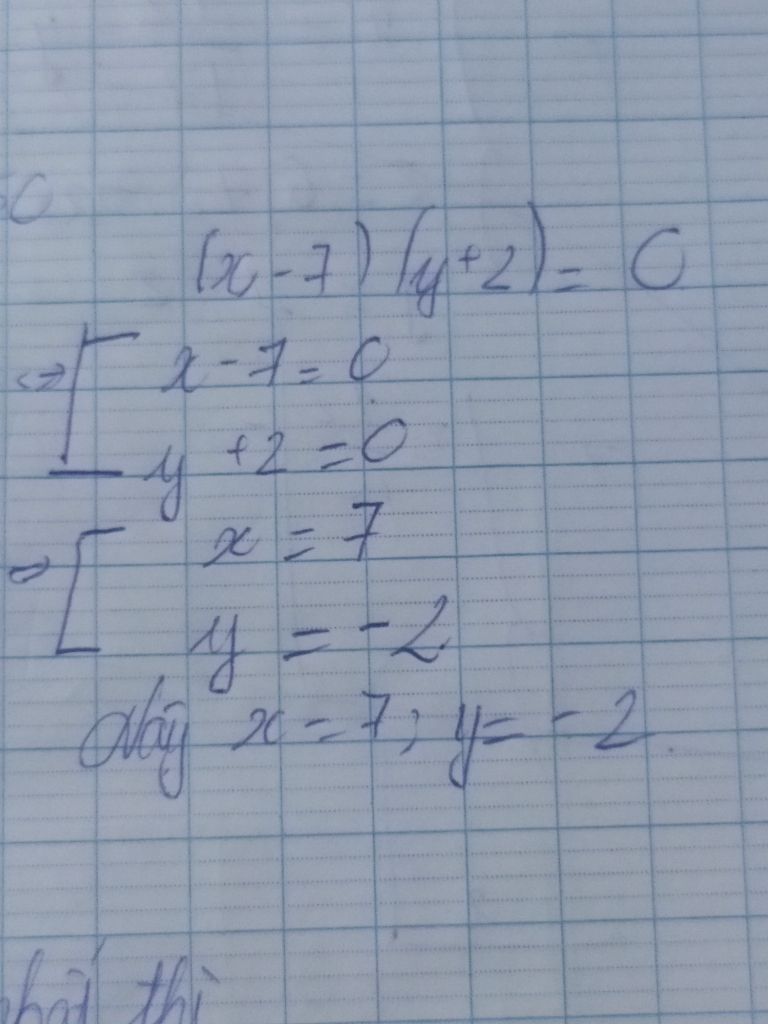 (x - 7) (y + 2) = 0
<=> [ x - 7 = 0
y + 2 = 0
=> [ x = 7
y = - 2
Vậy x = 7; y = - 2.
thì